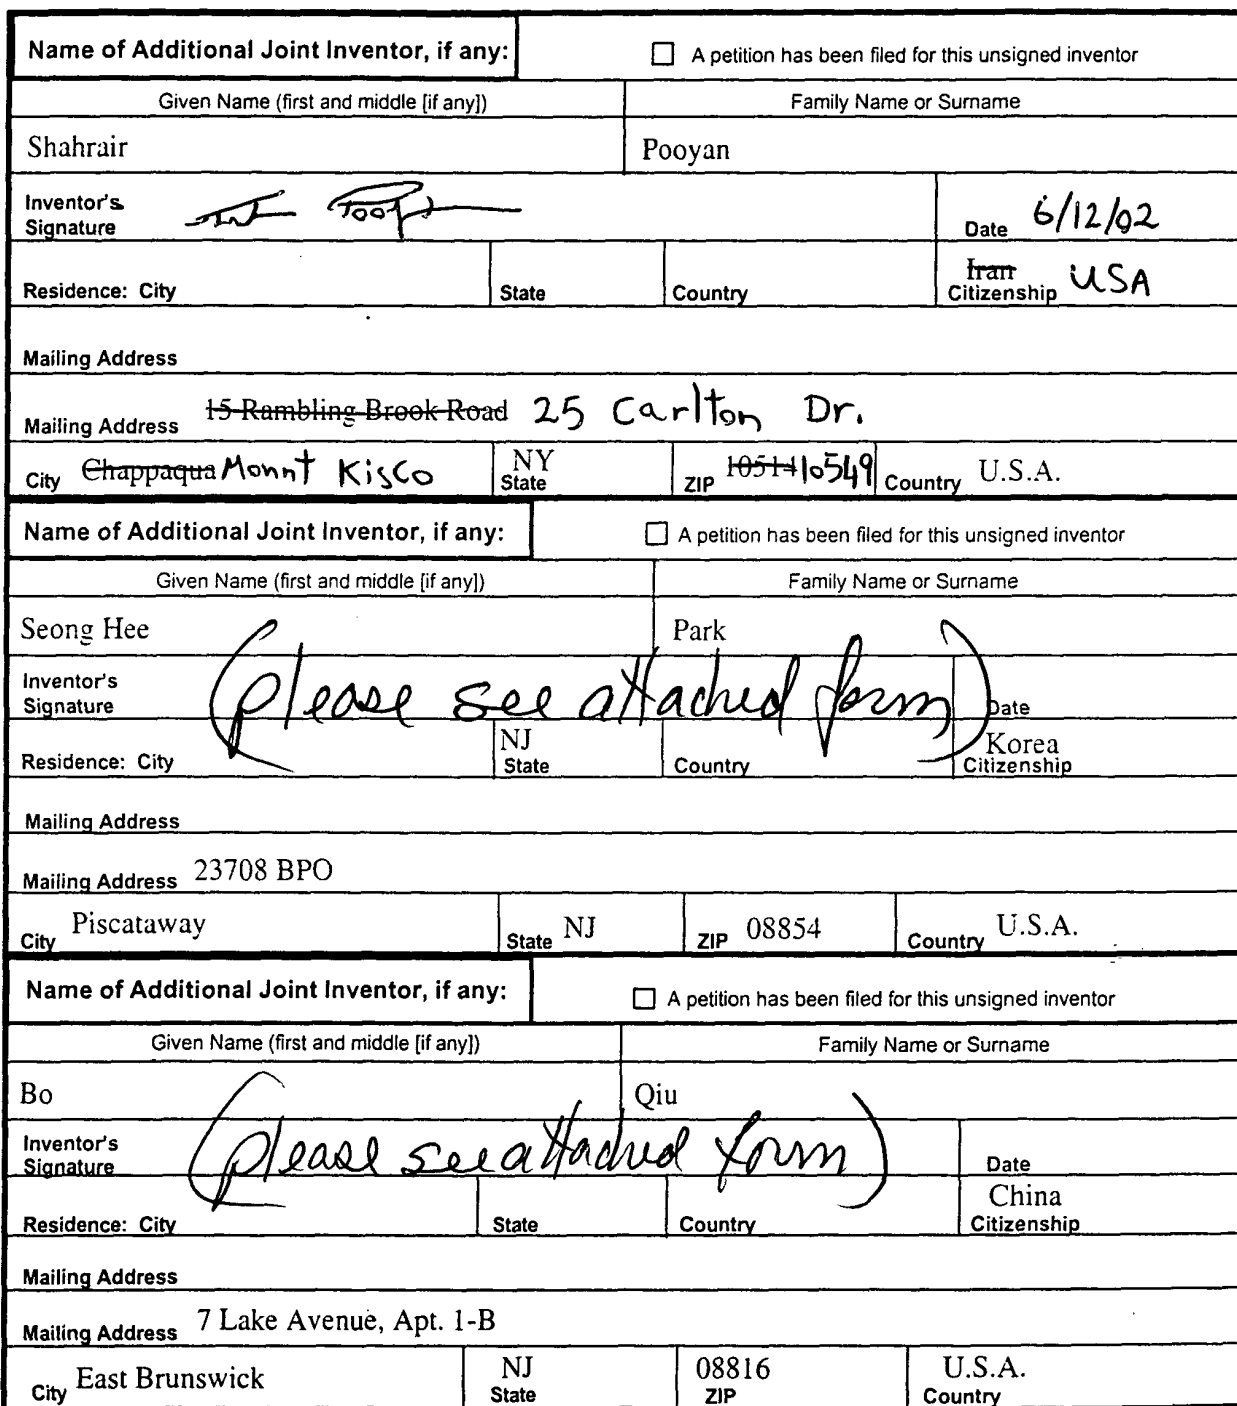 Name of Additional Joint Inventor, if any: ☐ A petition has been filed for this unsigned inventor
Given Name (first and middle [if any]) Family Name or Surname
Shahrair Pooyan
Inventor's
Signature Date 6/12/02
Iran USA
Residence: City State Country Citizenship
Mailing Address
Mailing Address 15 Rambling Brook Road 25 Carlton Dr.
City Chappaqua Mount Kisco NY State ZIP 10514 10549 Country U.S.A.
Name of Additional Joint Inventor, if any: ☐ A petition has been filed for this unsigned inventor
Given Name (first and middle [if any]) Family Name or Surname
Seong Hee Park
Inventor's
Signature (please see attached form) Date
NJ Korea
Residence: City State Country Citizenship
Mailing Address
Mailing Address 23708 BPO
City Piscataway State NJ ZIP 08854 Country U.S.A.
Name of Additional Joint Inventor, if any: ☐ A petition has been filed for this unsigned inventor
Given Name (first and middle [if any]) Family Name or Surname
Bo Qiu
Inventor's
Signature (please see attached form) Date
China
Residence: City State Country Citizenship
Mailing Address
Mailing Address 7 Lake Avenue, Apt. 1-B
City East Brunswick NJ State 08816 ZIP U.S.A. Country